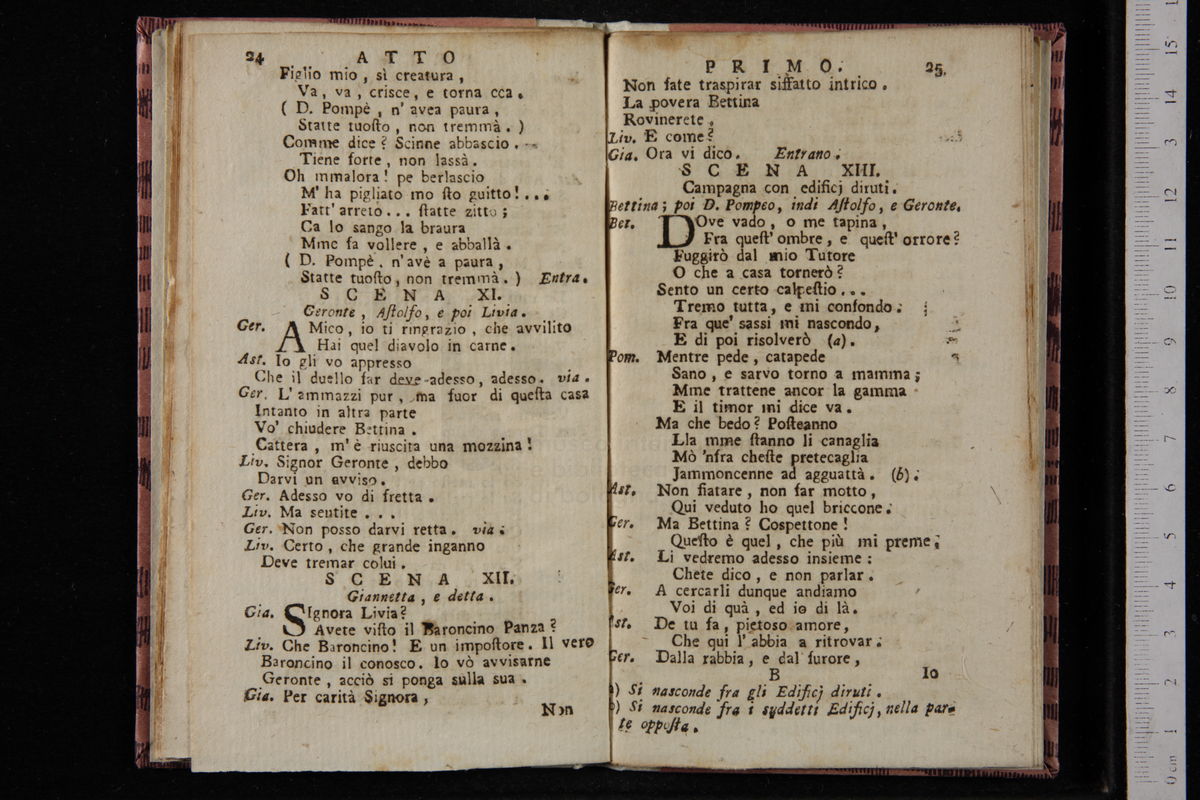 24 ATTO
Figlio mio, sì creatura,
Va, va, crisce, e torna cca.
( D. Pompè, n' avea paura,
Statte tuosto, non tremmà. )
Comme dice? Scinne abbascio.
Tiene forte, non lassà.
Oh mmalora! pe berlascio
M' ha pigliato mo sto guitto!...
Fatt' arreto... statte zitto;
Ca lo sango la braura
Mme fa vollere, e abballà.
( D. Pompè, n' avè a paura,
Statte tuosto, non tremmà. ) Entra.
SCENA XI.
Geronte, Astolfo, e poi Livia.
Ger. AMico, io ti ringrazio, che avvilito
Hai quel diavolo in carne.
Ast. Io gli vo appresso
Che il duello far deve adesso, adesso. via.
Ger. L' ammazzi pur, ma fuor di questa casa
Intanto in altra parte
Vo' chiudere Bettina.
Cattera, m' è riuscita una mozzina!
Liv. Signor Geronte, debbo
Darvi un avviso.
Ger. Adesso vo di fretta.
Liv. Ma sentite...
Ger. Non posso darvi retta. via.
Liv. Certo, che grande inganno
Deve tremar colui.
SCENA XII.
Giannetta, e detta.
Gia. SIgnora Livia?
Avete visto il Baroncino Panza?
Liv. Che Baroncino! E un impostore. Il vero
Baroncino il conosco. Io vò avvisarne
Geronte, acciò si ponga sulla sua.
Gia. Per carità Signora,
Non
PRIMO. 25.
Non fate traspirar siffatto intrico.
La povera Bettina
Rovinerete.
Liv. E come?
Gia. Ora vi dico. Entrano.
SCENA XIII.
Campagna con edificj diruti.
Bettina; poi D. Pompeo, indi Astolfo, e Geronte.
Bet. DOve vado, o me tapina,
Fra quest' ombre, e quest' orrore?
Fuggirò dal mio Tutore
O che a casa tornerò?
Sento un certo calpestio...
Tremo tutta, e mi confondo:
Fra que' sassi mi nascondo,
E di poi risolverò (a).
Pom. Mentre pede, catapede
Sano, e sarvo torno a mamma;
Mme trattene ancor la gamma
E il timor mi dice va.
Ma che bedo? Posteanno
Lla mme stanno li canaglia
Mò 'nfra cheste pretecaglia
Jammoncenne ad agguattà. (b).
Ast. Non fiatare, non far motto,
Qui veduto ho quel briccone.
Ger. Ma Bettina? Cospettone!
Questo è quel, che più mi preme;
Ast. Li vedremo adesso insieme:
Chete dico, e non parlar.
Ger. A cercarli dunque andiamo
Voi di quà, ed io di là.
Ast. De tu fa, pietoso amore,
Che qui l' abbia a ritrovar.
Ger. Dalla rabbia, e dal furore,
B Io
a) Si nasconde fra gli Edificj diruti.
b) Si nasconde fra i suddetti Edificj, nella par-
te opposta.